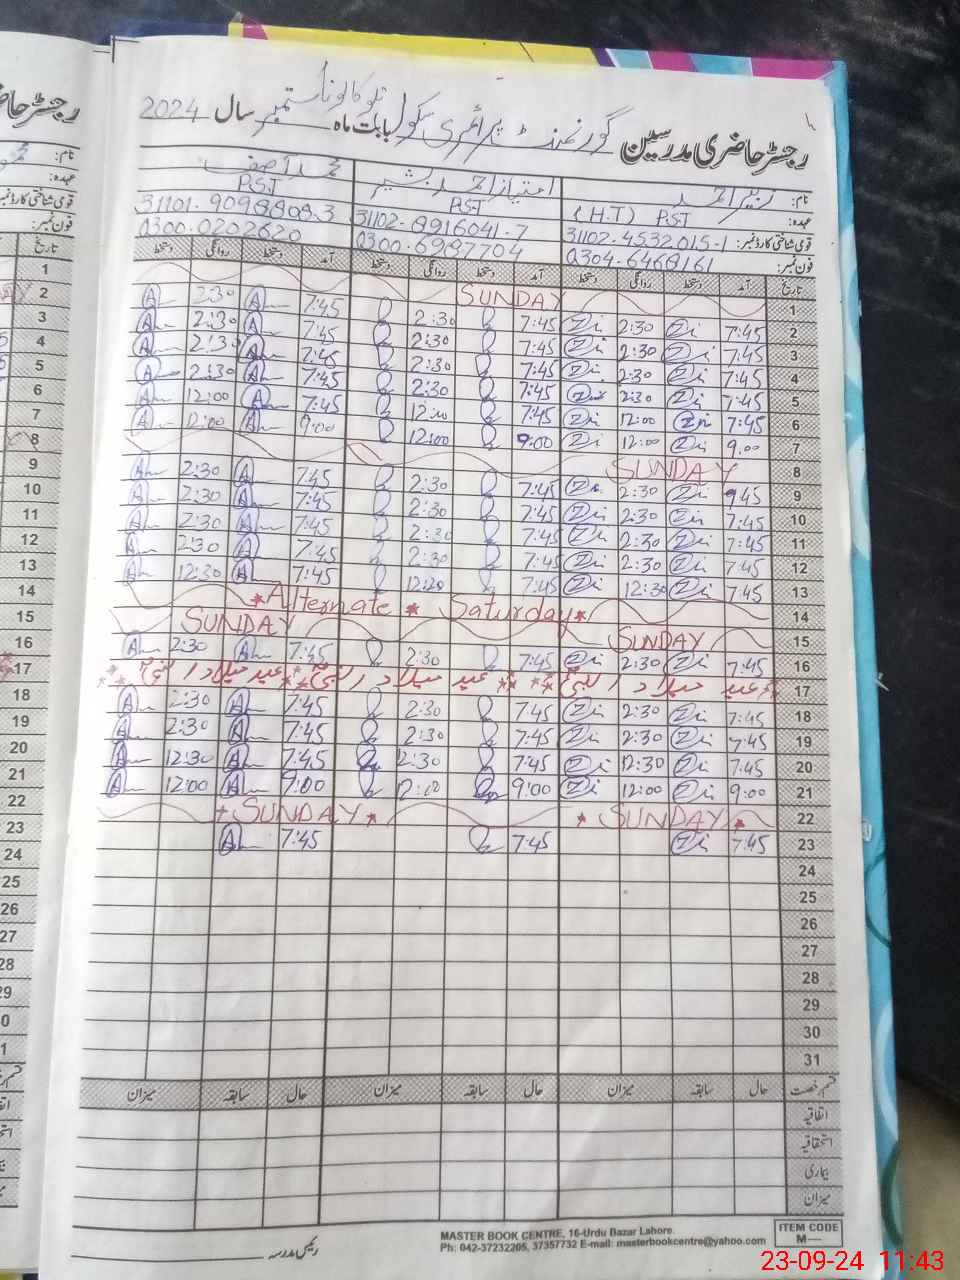 رجسٹر حاضری مدرسین گورنمنٹ پرائمری سکول بابت ماہ ستمبر سال 2024
نام: زبیر احمد امتیاز احمد بشیر محمد آصف
عہدہ: P.S.T (H.T) P.S.T P.S.T
قومی شناختی کارڈ نمبر: 31102-4532015-1 31102-8916041-7 31101-9098808-3
فون نمبر: 0304-6468161 0300-6987704 0300-0202620
تاریخ آمد دستخط روانگی دستخط آمد دستخط روانگی دستخط آمد دستخط روانگی دستخط
1 SUNDAY
2 7:45 Zi 2:30 Zi 7:45 2:30 7:45 A 2:30 A
3 7:45 Zi 2:30 Zi 7:45 2:30 7:45 A 2:30 A
4 7:45 Zi 2:30 Zi 7:45 2:30 7:45 A 2:30 A
5 7:45 Zi 2:30 Zi 7:45 2:30 7:45 A 2:30 A
6 7:45 Zi 12:00 Zi 7:45 12:00 7:45 A 12:00 A
7 9:00 Zi 12:00 Zi 9:00 12:00 9:00 A 12:00 A
8 SUNDAY
9 7:45 Zi 2:30 Zi 7:45 2:30 7:45 A 2:30 A
10 7:45 Zi 2:30 Zi 7:45 2:30 7:45 A 2:30 A
11 7:45 Zi 2:30 Zi 7:45 2:30 7:45 A 2:30 A
12 7:45 Zi 2:30 Zi 7:45 2:30 7:45 A 2:30 A
13 7:45 Zi 12:30 Zi 7:45 12:30 7:45 A 12:30 A
14 Alternate Saturday
15 SUNDAY SUNDAY
16 7:45 Zi 2:30 Zi 7:45 2:30 7:45 A 2:30 A
17 عید میلاد النبیؐ عید میلاد النبیؐ عید میلاد النبیؐ
18 7:45 Zi 2:30 Zi 7:45 2:30 7:45 A 2:30 A
19 7:45 Zi 2:30 Zi 7:45 2:30 7:45 A 2:30 A
20 7:45 Zi 12:30 Zi 7:45 12:30 7:45 A 12:30 A
21 9:00 Zi 12:00 Zi 9:00 12:00 9:00 A 12:00 A
22 SUNDAY SUNDAY
23 7:45 Zi 7:45 7:45 A
24
25
26
27
28
29
30
31
قسم رخصت حال سابقہ میزان حال سابقہ میزان حال سابقہ میزان
اتفاقیہ
استحقاقیہ
بیماری
میزان
رئیس مدرسہ
MASTER BOOK CENTRE, 16-Urdu Bazar Lahore.
Ph: 042-37232205, 37357732 E-mail: masterbookcentre@yahoo.com
ITEM CODE
M—
23-09-24 11:43